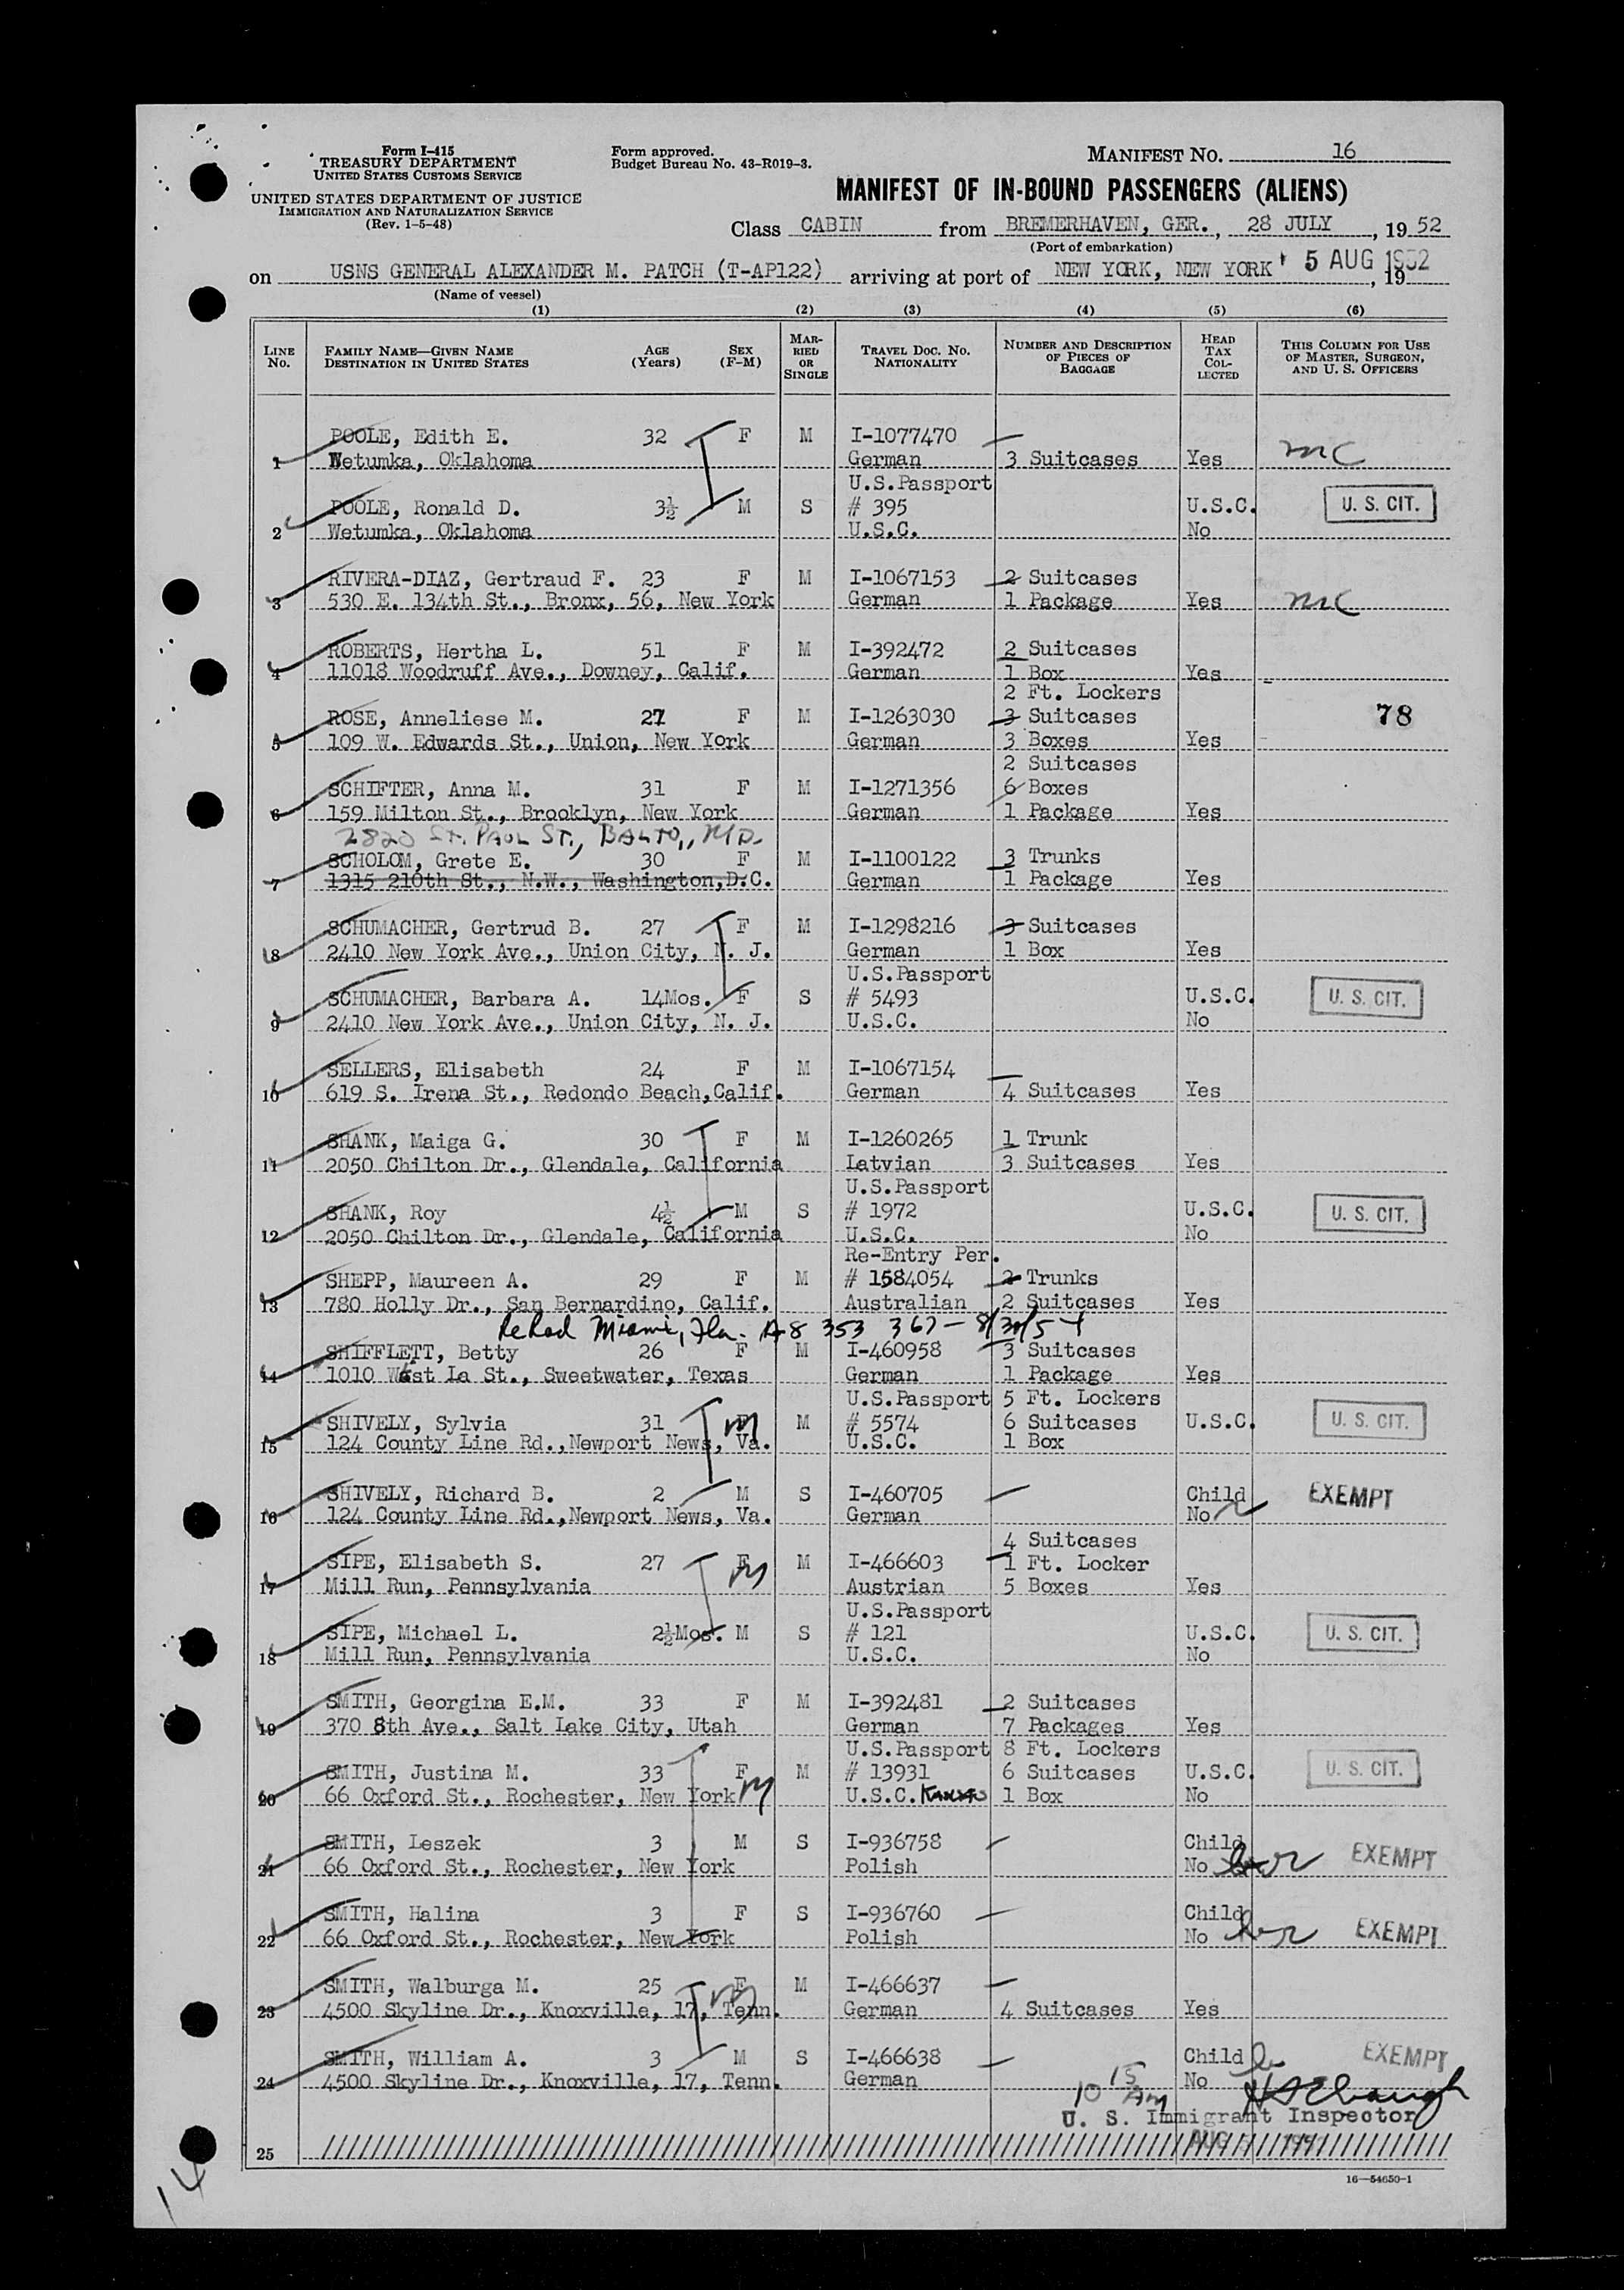 Form I-415
TREASURY DEPARTMENT
UNITED STATES CUSTOMS SERVICE
UNITED STATES DEPARTMENT OF JUSTICE
IMMIGRATION AND NATURALIZATION SERVICE
(Rev. 1-5-48)
Form approved.
Budget Bureau No. 43-R019-3.
MANIFEST NO. 16
MANIFEST OF IN-BOUND PASSENGERS (ALIENS)
Class CABIN from BREMERHAVEN, GER., 28 JULY, 1952
(Port of embarkation)
on USNS GENERAL ALEXANDER M. PATCH (T-AP122) arriving at port of NEW YORK, NEW YORK 5 AUG 1952, 19
(Name of vessel)
(1) (2) (3) (4) (5) (6)
LINE NO. FAMILY NAME—GIVEN NAME DESTINATION IN UNITED STATES AGE (Years) SEX (F-M) MARRIED OR SINGLE TRAVEL DOC. NO. NATIONALITY NUMBER AND DESCRIPTION OF PIECES OF BAGGAGE HEAD TAX COLLECTED THIS COLUMN FOR USE OF MASTER, SURGEON, AND U. S. OFFICERS
POOLE, Edith E. 32 F M I-1077470
1 Wetumka, Oklahoma German 3 Suitcases Yes mc
U.S.Passport
POOLE, Ronald D. 3½ M S # 395 U.S.C. U. S. CIT.
2 Wetumka, Oklahoma U.S.C. No
RIVERA-DIAZ, Gertraud F. 23 F M I-1067153 2 Suitcases
3 530 E. 134th St., Bronx, 56, New York German 1 Package Yes mc
ROBERTS, Hertha L. 51 F M I-392472 2 Suitcases
4 11018 Woodruff Ave., Downey, Calif. German 1 Box Yes
2 Ft. Lockers
ROSE, Anneliese M. 27 F M I-1263030 3 Suitcases 78
5 109 W. Edwards St., Union, New York German 3 Boxes Yes
2 Suitcases
SCHIFTER, Anna M. 31 F M I-1271356 6 Boxes
6 159 Milton St., Brooklyn, New York German 1 Package Yes
2820 St. PAUL ST., BALTO., MD.
SCHOLOM, Grete E. 30 F M I-1100122 3 Trunks
7 1315 210th St., N.W., Washington,D.C. German 1 Package Yes
SCHUMACHER, Gertrud B. 27 F M I-1298216 3 Suitcases
8 2410 New York Ave., Union City, N. J. German 1 Box Yes
U.S.Passport
SCHUMACHER, Barbara A. 14Mos. F S # 5493 U.S.C. U. S. CIT.
9 2410 New York Ave., Union City, N. J. U.S.C. No
SELLERS, Elisabeth 24 F M I-1067154
10 619 S. Irena St., Redondo Beach,Calif. German 4 Suitcases Yes
SHANK, Maiga G. 30 F M I-1260265 1 Trunk
11 2050 Chilton Dr., Glendale, California Latvian 3 Suitcases Yes
U.S.Passport
SHANK, Roy 4½ M S # 1972 U.S.C. U. S. CIT.
12 2050 Chilton Dr., Glendale, California U.S.C. No
Re-Entry Per.
SHEPP, Maureen A. 29 F M # 1584054 2 Trunks
13 780 Holly Dr., San Bernardino, Calif. Australian 2 Suitcases Yes
Miami, Fla. A8 353 367 — 8/30/54
SHIFFLETT, Betty 26 F M I-460958 3 Suitcases
14 1010 West La St., Sweetwater, Texas German 1 Package Yes
U.S.Passport 5 Ft. Lockers
SHIVELY, Sylvia 31 F M M # 5574 6 Suitcases U.S.C. U. S. CIT.
15 124 County Line Rd.,Newport News, Va. U.S.C. 1 Box
SHIVELY, Richard B. 2 M S I-460705 Child EXEMPT
16 124 County Line Rd.,Newport News, Va. German No
4 Suitcases
SIPE, Elisabeth S. 27 F M M I-466603 1 Ft. Locker
17 Mill Run, Pennsylvania Austrian 5 Boxes Yes
U.S.Passport
SIPE, Michael L. 2½Mos. M S # 121 U.S.C. U. S. CIT.
18 Mill Run, Pennsylvania U.S.C. No
SMITH, Georgina E.M. 33 F M I-392481 2 Suitcases
19 370 8th Ave., Salt Lake City, Utah German 7 Packages Yes
U.S.Passport 8 Ft. Lockers
SMITH, Justina M. 33 F M # 13931 6 Suitcases U.S.C. U. S. CIT.
20 66 Oxford St., Rochester, New York M U.S.C. KANSAS 1 Box No
SMITH, Leszek 3 M S I-936758 Child EXEMPT
21 66 Oxford St., Rochester, New York Polish No
SMITH, Halina 3 F S I-936760 Child EXEMPT
22 66 Oxford St., Rochester, New York Polish No
SMITH, Walburga M. 25 F M M I-466637
23 4500 Skyline Dr., Knoxville, 17, Tenn. German 4 Suitcases Yes
SMITH, William A. 3 M S I-466638 Child EXEMPT
24 4500 Skyline Dr., Knoxville, 17, Tenn. German No
10 15 AM
U. S. Immigrant Inspector
25 AUG
16—54650-1
14